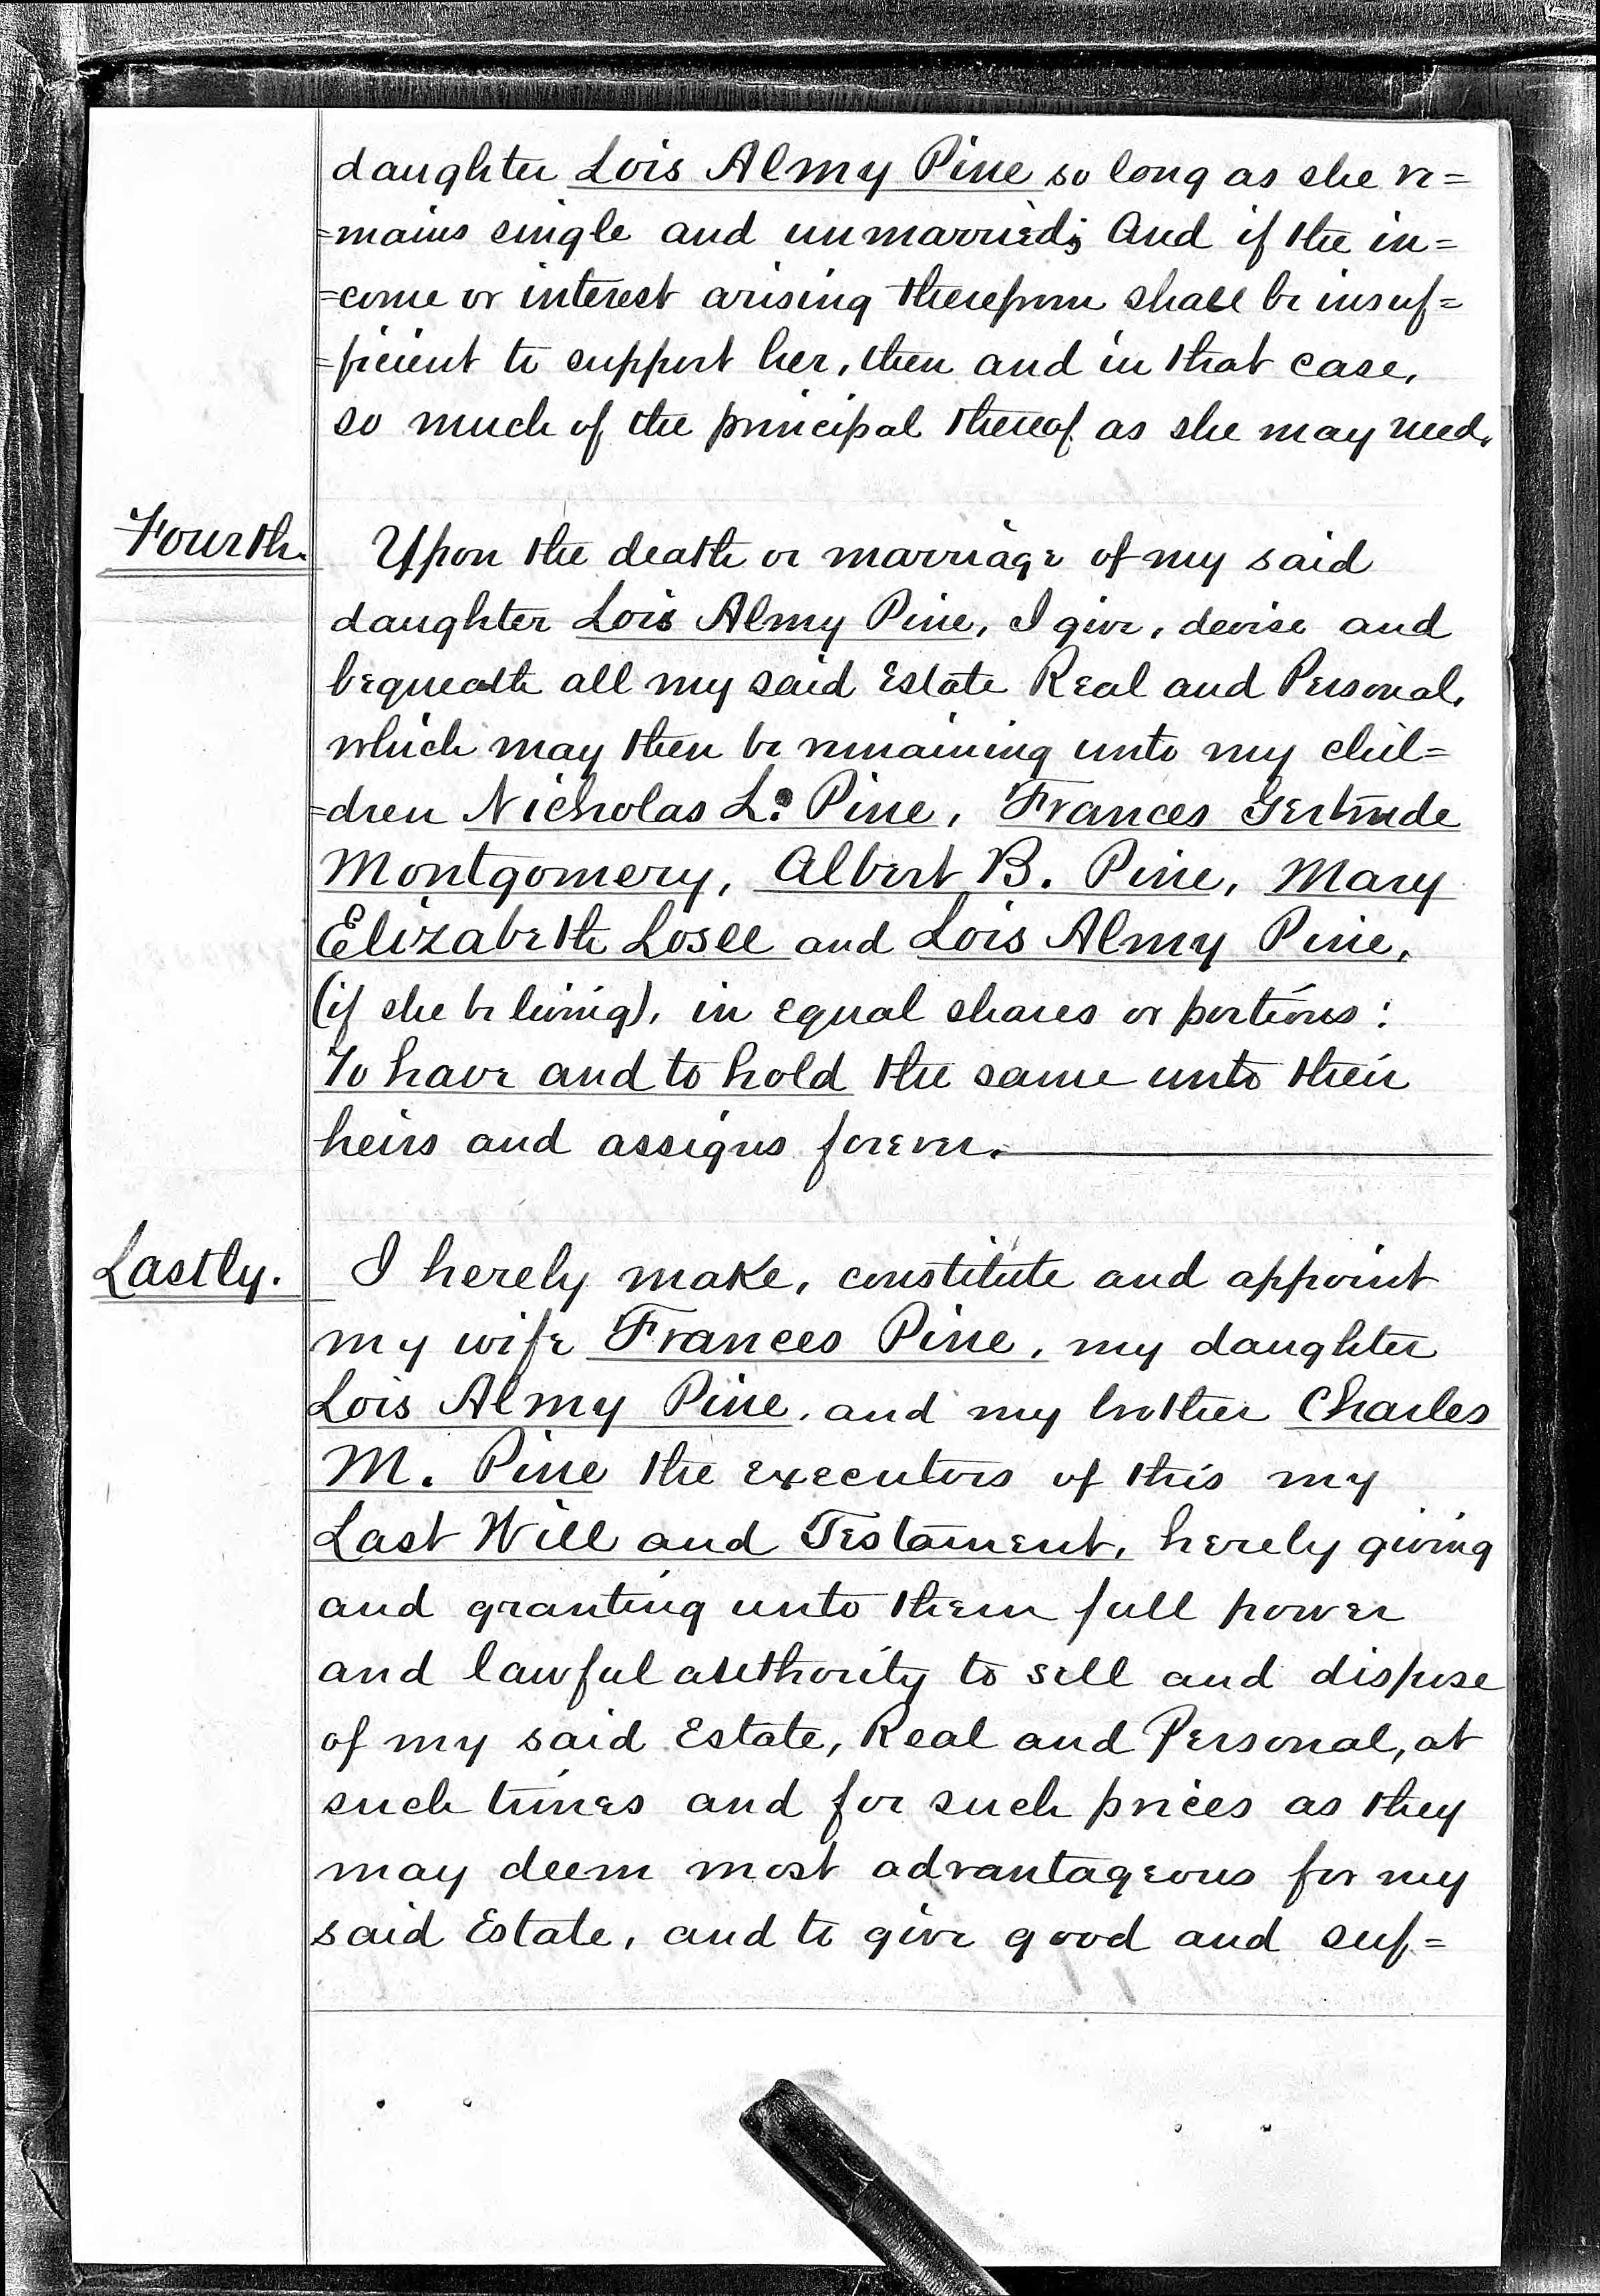 daughter Lois Almy Pine so long as she re=
=mains single and unmarried; And if the in=
=come or interest arising therefrom shall be insuf=
=ficient to support her, then and in that case,
so much of the principal thereof as she may need.
Fourth. Upon the death or marriage of my said
daughter Lois Almy Pine, I give, devise and
bequeath all my said Estate Real and Personal,
which may then be remaining unto my chil=
=dren Nicholas L. Pine, Frances Gertrude
Montgomery, Albert B. Pine, Mary
Elizabeth Losee and Lois Almy Pine,
(if she be living), in equal shares or portions:
To have and to hold the same unto their
heirs and assigns forever.
Lastly. I hereby make, constitute and appoint
my wife Frances Pine, my daughter
Lois Almy Pine, and my brother Charles
M. Pine the executors of this my
Last Will and Testament, hereby giving
and granting unto them full power
and lawful authority to sell and dispose
of my said Estate, Real and Personal, at
such times and for such prices as they
may deem most advantageous for my
said Estate, and to give good and suf=